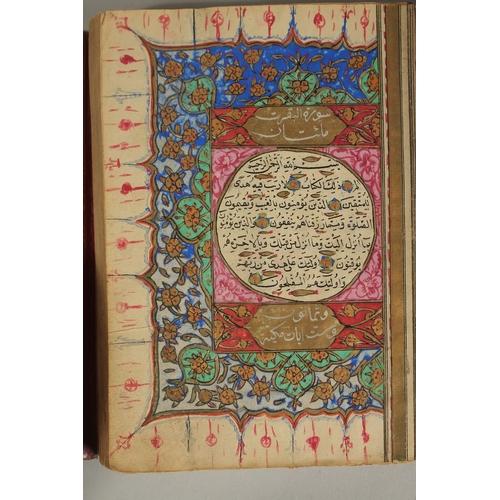 سورة البقرت
مائتان
بسم الله الرحمن الرحيم
الم ذلك الكتاب لا ريب فيه هدى
للمتقين الذين يؤمنون بالغيب ويقيمون
الصلوة ومما رزقناهم ينفقون والذين يؤمنون
بما انزل اليك وما انزل من قبلك وبالاخرة هم
يوقنون اولئك على هدى من ربهم
واولئك هم المفلحون
وثمانون
وست ايات مكية